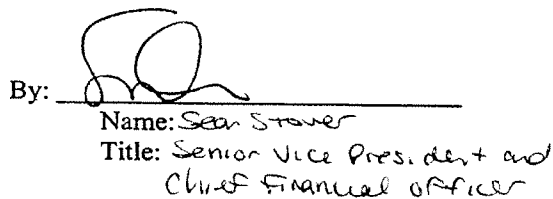 By:
Name: Sean Stover
Title: Senior Vice President and
Chief Financial Officer